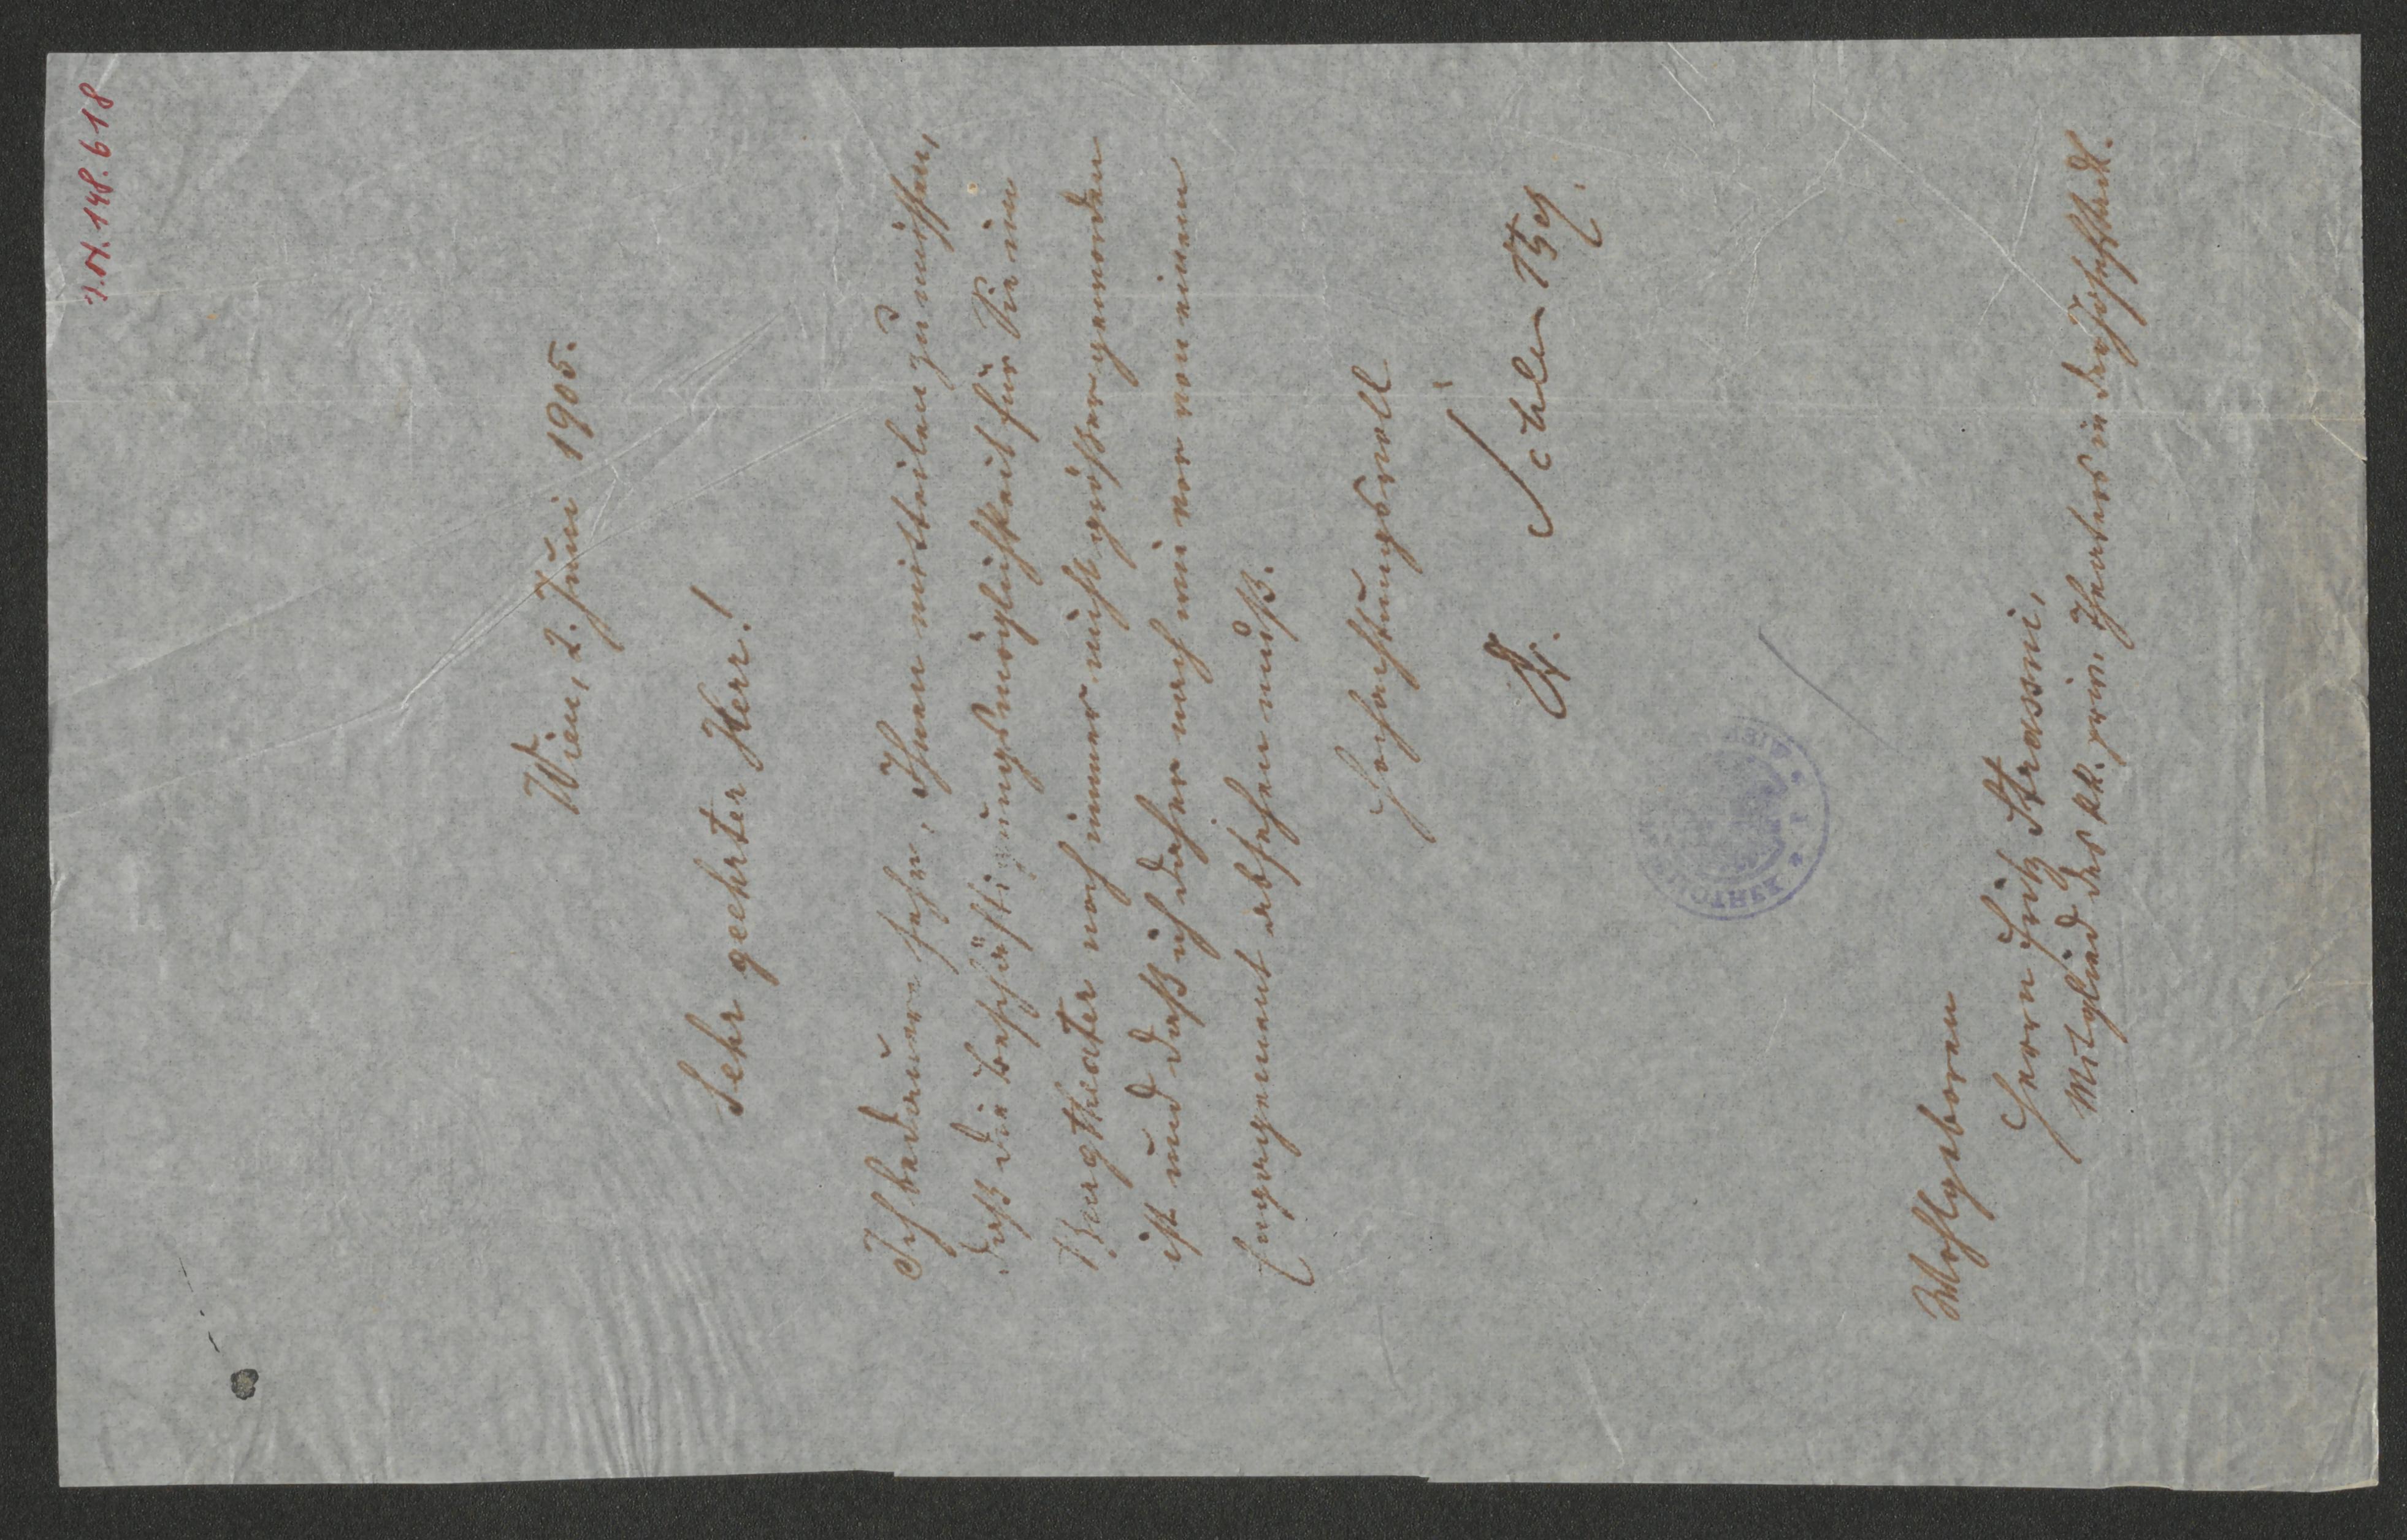 I.N. 148.618
Wien, 2. Juni 1905.
Sehr geehrter Herr!
Ich bedauere sehr, Ihnen mitteilen zu müssen,
daß die Beschäftigungsmöglichkeit für Sie im
Burgtheater noch immer nicht größer geworden
ist und daß ich daher nach wie vor von einem
Engagement absehen muß.
Hochachtungsvoll
Schlenther
Wohlgeboren
Herrn Fritz Strassni,
Mitglied des kk. priv. Theaters in der Josefstadt.